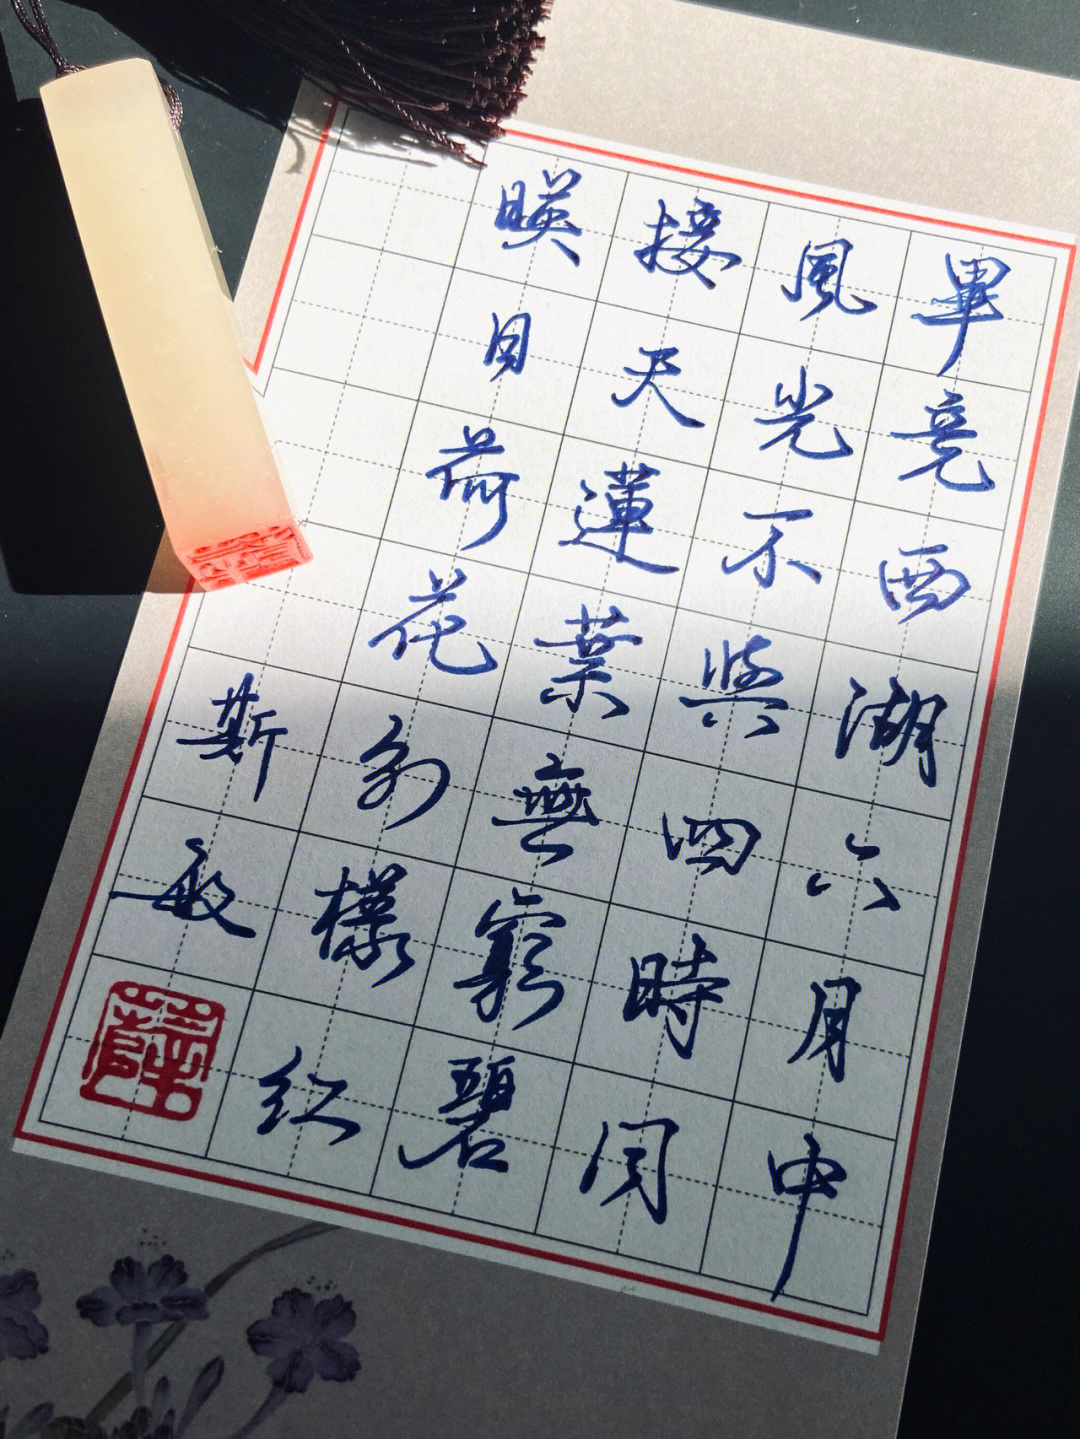 畢竟西湖六月中
風光不與四時同
接天蓮葉無窮碧
暎日荷花别樣红
斯敏